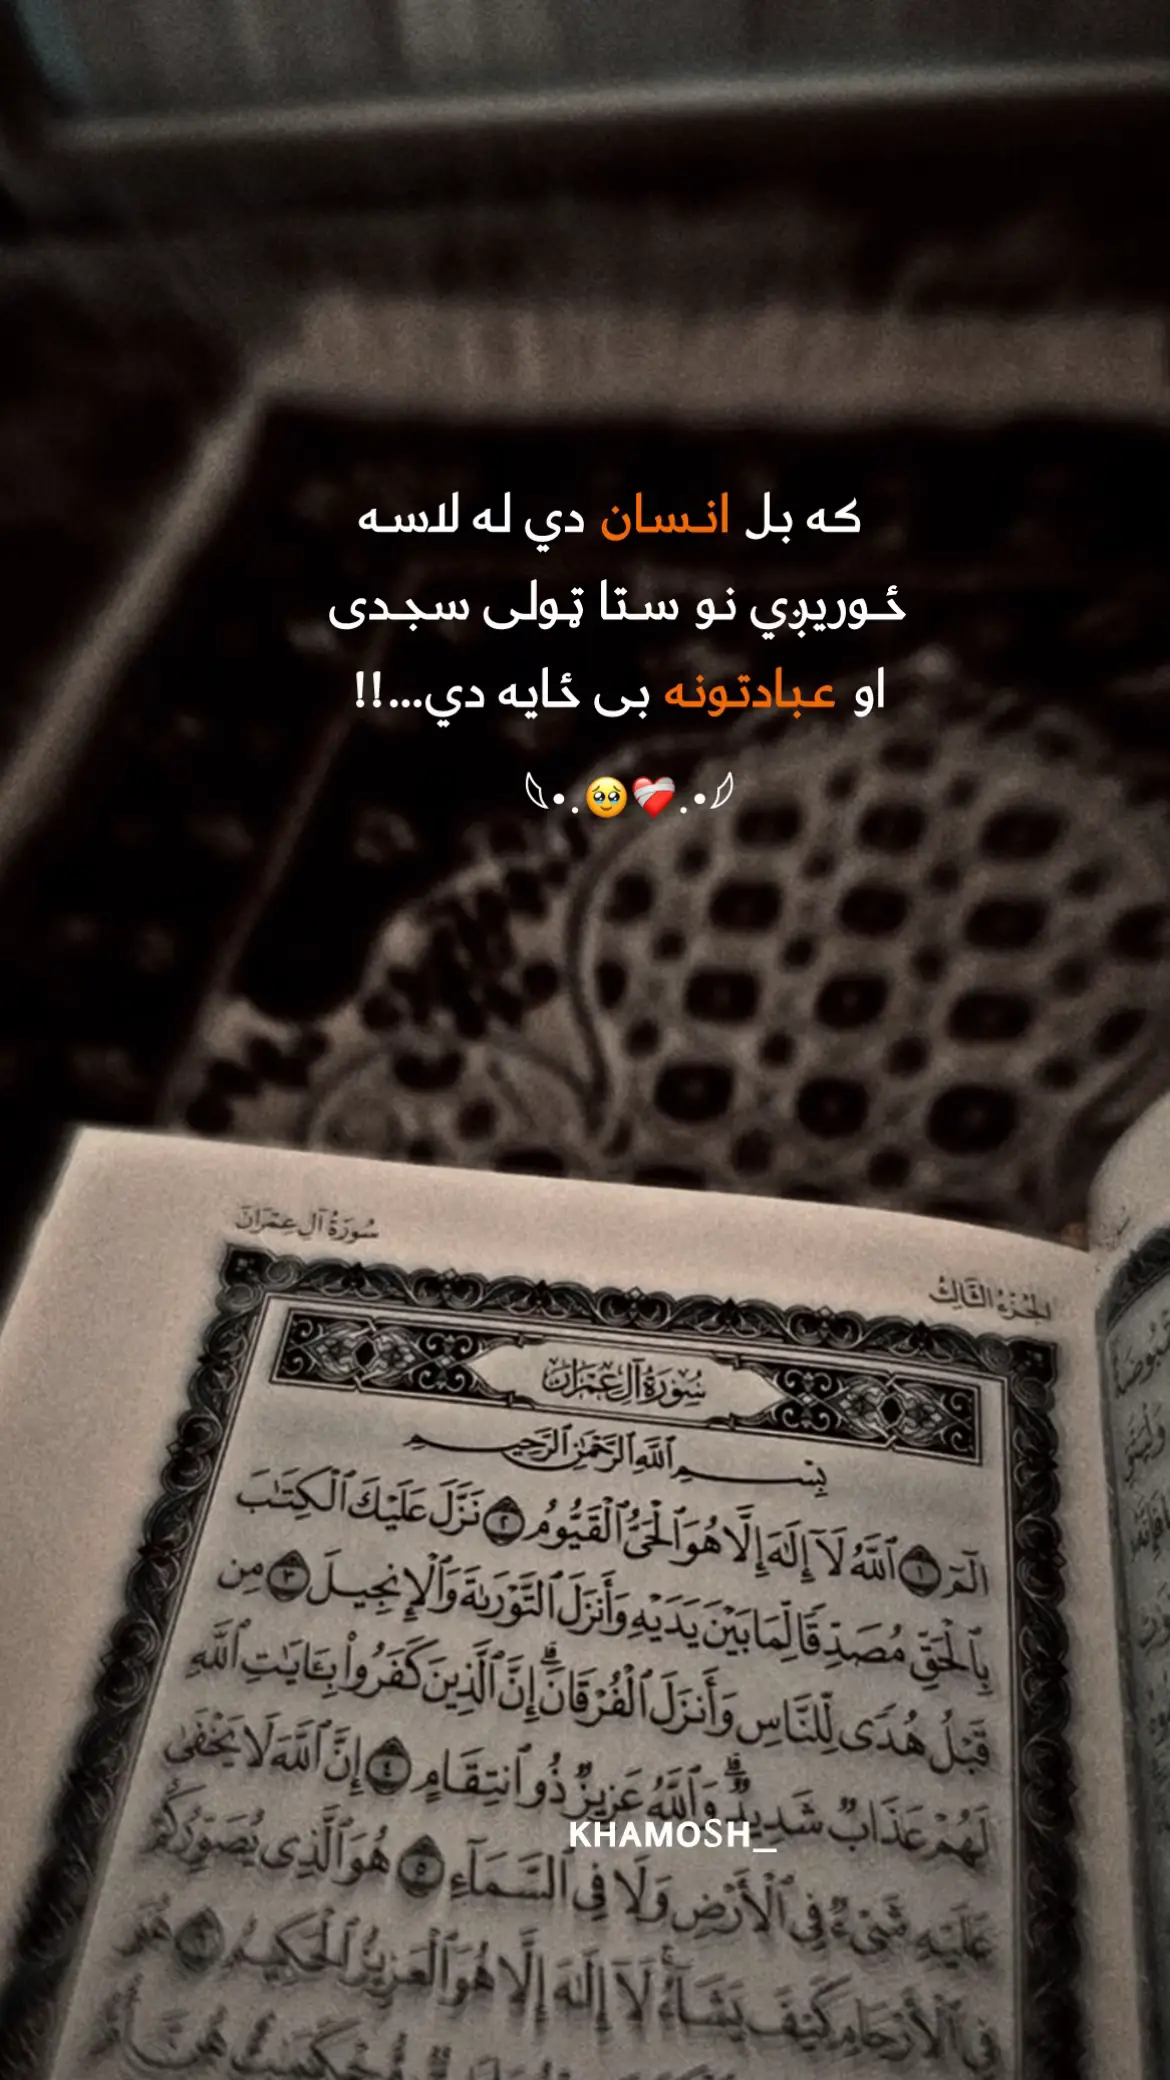 که بل انسان دي له لاسه
ځوریږي نو ستا ټولی سجدی
او عبادتونه بی ځایه دي...!!
🥹❤️‍🩹
سُورَةُ آلِ عِمْرَانَ
الجُزْءُ الثَّالِثُ
سُورَةُ آلِ عِمْرَانَ
بِسْمِ ٱللَّهِ ٱلرَّحْمَٰنِ ٱلرَّحِيمِ
الٓمٓ ١ ٱللَّهُ لَآ إِلَٰهَ إِلَّا هُوَ ٱلْحَىُّ ٱلْقَيُّومُ ٢ نَزَّلَ عَلَيْكَ ٱلْكِتَٰبَ
بِٱلْحَقِّ مُصَدِّقًا لِّمَا بَيْنَ يَدَيْهِ وَأَنزَلَ ٱلتَّوْرَىٰةَ وَٱلْإِنجِيلَ ٣ مِن
قَبْلُ هُدًى لِّلنَّاسِ وَأَنزَلَ ٱلْفُرْقَانَ ۗ إِنَّ ٱلَّذِينَ كَفَرُوا۟ بِـَٔايَٰتِ ٱللَّهِ
لَهُمْ عَذَابٌ شَدِيدٌ ۗ وَٱللَّهُ عَزِيزٌ ذُو ٱنتِقَامٍ ٤ إِنَّ ٱللَّهَ لَا يَخْفَىٰ
KHAMOSH_
عَلَيْهِ شَىْءٌ فِى ٱلْأَرْضِ وَلَا فِى ٱلسَّمَآءِ ٥ هُوَ ٱلَّذِى يُصَوِّرُكُمْ
فِى ٱلْأَرْحَامِ كَيْفَ يَشَآءُ ۚ لَآ إِلَٰهَ إِلَّا هُوَ ٱلْعَزِيزُ ٱلْحَكِيمُ ٦ هُوَ